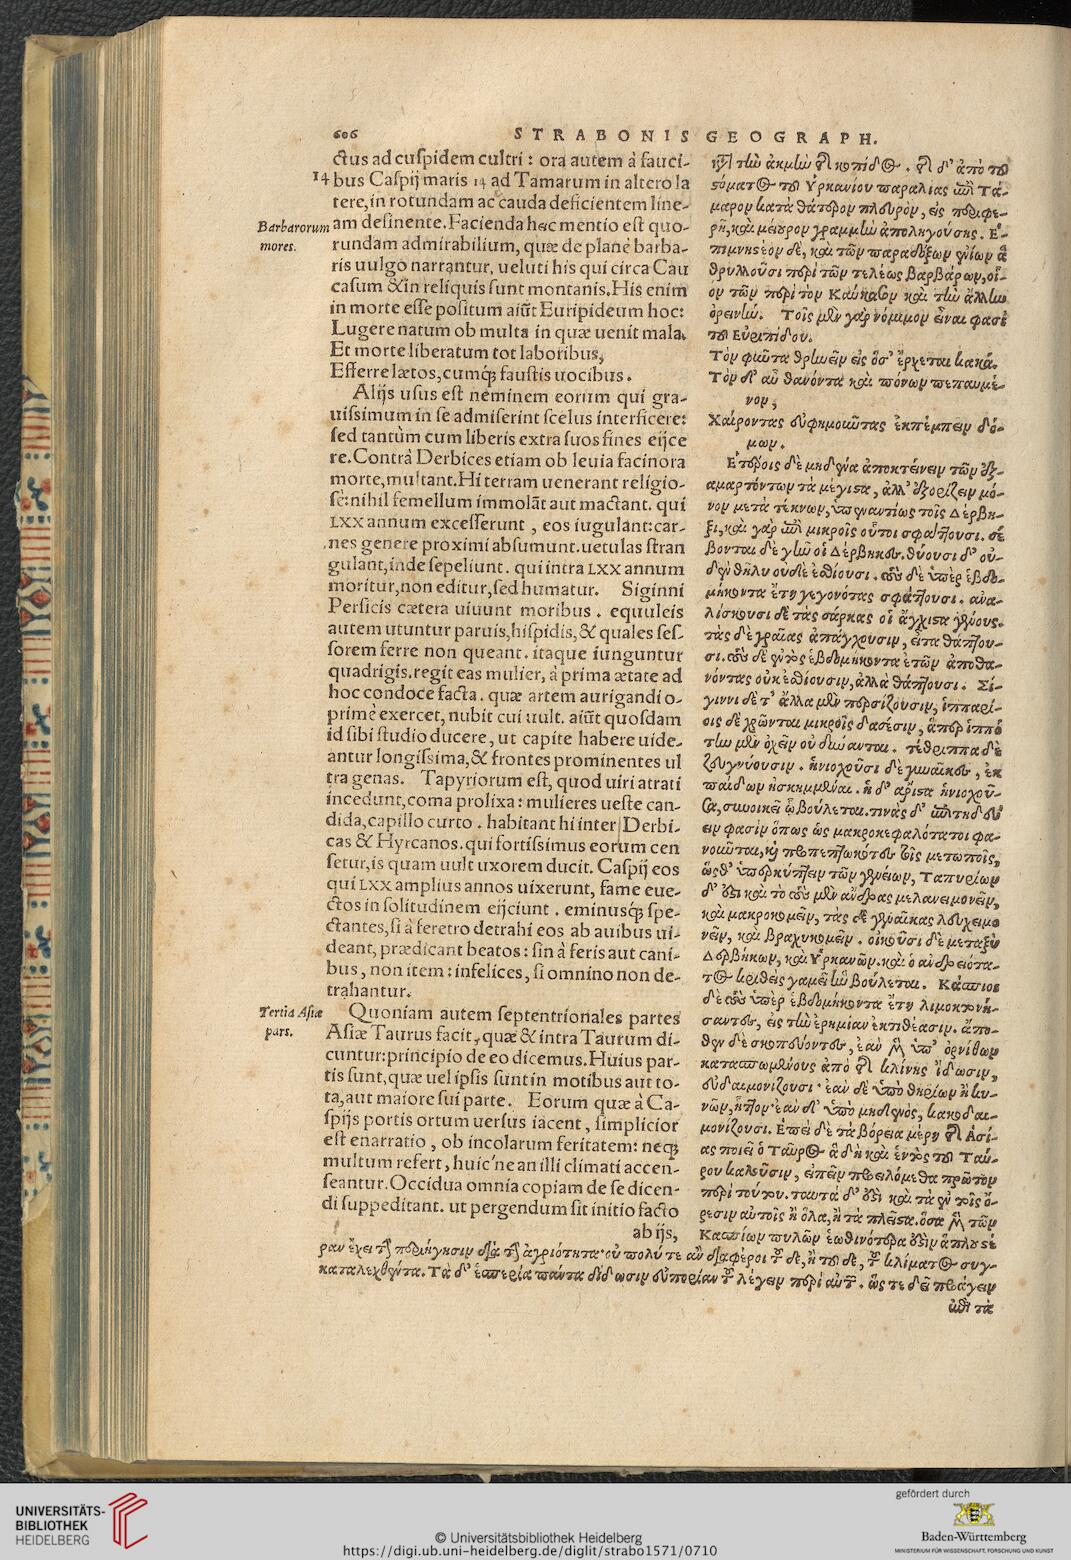 606 STRABONIS GEOGRAPH.
ctus ad cuspidem cultri : ora autem à fauci-
14 bus Caspij maris 14 ad Tamarum in altero la
tere, in rotundam ac cauda deficientem line-
Barbarorum
mores.
am desinente. Facienda hæc mentio est quo-
rundam admirabilium, quæ de planè barba-
ris uulgo narrantur, ueluti his qui circa Cau
casum & in reliquis sunt montanis. His enim
in morte esse positum aiũt Euripideum hoc:
Lugere natum ob multa in quæ uenit mala,
Et morte liberatum tot laboribus,
Efferre lætos, cumq́; faustis uocibus.
Alijs usus est neminem eorum qui gra-
uissimum in se admiserint scelus interficere:
sed tantùm cum liberis extra suos fines eijce
re. Contrà Derbices etiam ob leuia facinora
morte, multant. Hi terram uenerant religio-
sè: nihil femellum immolãt aut mactant. qui
LXX annum excesserunt, eos iugulant: car-
nes genere proximi absumunt. uetulas stran
gulant, inde sepeliunt. qui intra LXX annum
moritur, non editur, sed humatur. Siginni
Persicis cætera uiuunt moribus. equuleis
autem utuntur paruis, hispidis, & quales ses-
sorem ferre non queant. itaque iunguntur
quadrigis. regit eas mulier, à prima ætate ad
hoc condocefacta. quæ artem aurigandi o-
primè exercet, nubit cui uult. aiũt quosdam
id sibi studio ducere, ut capite habere uide-
antur longissima, & frontes prominentes ul
tra genas. Tapyriorum est, quod uiri atrati
incedunt, coma prolixa : mulieres ueste can-
dida, capillo curto. habitant hi inter Derbi-
cas & Hyrcanos. qui fortissimus eorum cen
setur, is quam uult uxorem ducit. Caspij eos
qui LXX amplius annos uixerunt, fame eue-
ctos in solitudinem eijciunt. eminusq́; spe-
ctantes, si à feretro detrahi eos ab auibus ui-
deant, prædicant beatos : sin à feris aut cani-
bus, non item : infelices, si omnino non de-
trahantur.
Tertia Asiæ
pars.
Quoniam autem septentrionales partes
Asiæ Taurus facit, quæ & intra Taurum di-
cuntur: principio de eo dicemus. Huius par-
tis sunt, quæ uel ipsis sunt in motibus aut to-
ta, aut maiore sui parte. Eorum quæ à Ca-
spijs portis ortum uersus iacent, simplicior
est enarratio, ob incolarum feritatem: neq́;
multum refert, huic'ne an illi climati accen-
seantur. Occidua omnia copiam de se dicen-
di suppeditant. ut pergendum sit initio facto
ab ijs,
κτ τὴν ἀκμὴν τῆς κοπίδος. τῆς δ' ἀπὸ τοῦ
στόματος τοῦ Υ῾ρκανίου παραλίας ἐπὶ Τά-
μαρον κατὰ θάτερον πλευρὸν, εἰς περιφε-
ρῆ, καὶ μείουρον γραμμὴν ἀποληγούσης. Ε᾿-
πιμνηστέον δὲ, καὶ τῶν παραδόξων ἐνίων ἃ
θρυλλοῦσι περὶ τῶν τελέως βαρβάρων, οἷ-
ον τῶν περὶ τὸν Καύκασον καὶ τὴν ἄλλην
ὀρεινήν. Τοῖς μὲν γὰρ νόμιμον εἶναι φασὶ
τοῦ Εὐριπίδου.
Τὸν φῦντα θρηνεῖν εἰς ὅσ' ἔρχεται κακά.
Τὸν δ' αὖ θανόντα καὶ πόνων πεπαυμέ-
νον,
Χαίροντας εὐφημοῦντας ἐκπέμπειν δό-
μων.
Ε῾τέροις δὲ μηδένα ἀποκτείνειν τῶν ἐξ-
αμαρτόντων τὰ μέγιστα, ἀλλ' ἐξορίζειν μό-
νον μετὰ τέκνων, ὑπεναντίως τοῖς Δέρβη-
ξι, καὶ γὰρ ἐπὶ μικροῖς οὗτοι σφάττουσι. σέ
βονται δὲ γῆν οἱ Δέρβηκες. θύουσι δ' οὐ-
δὲν θῆλυ οὐδὲ ἐσθίουσι. τοὺς δὲ ὑπὲρ ἑβδο-
μήκοντα ἔτη γεγονότας σφάττουσι. ἀνα-
λίσκουσι δὲ τὰς σάρκας οἱ ἄγχιστα γένους.
τὰς δὲ γραίας ἀπάγχουσιν, εἶτα θάπτου-
σι. τοὺς δὲ ἐντὸς ἑβδομήκοντα ἐτῶν ἀποθα-
νόντας οὐκ ἐσθίουσιν, ἀλλὰ θάπτουσι. Σί-
γιννι δὲ τ' ἄλλα μὲν περσίζουσιν, ἱππαρί-
οις δὲ χρῶνται μικροῖς δασέσιν, ἅπερ ἱππό
την μὲν ὀχεῖν οὐ δύνανται. τέθριππα δὲ
ζευγνύουσιν. ἡνιοχοῦσι δὲ γυναῖκες, ἐκ
παίδων ἠσκημμέναι. ἡ δ' ἄριστα ἡνιοχοῦ-
σα, συνοικεῖ ᾧ βούλεται. τινὰς δ' ἐπιτηδεύ
ειν φασὶν ὅπως ὡς μακροκεφαλότατοι φα-
νοῦνται, καὶ προπεπτωκότες τοῖς μετώποις,
ὥσθ' ὑπερκύπτειν τῶν γενείων, Ταπυρίων
δ' ἐστὶ καὶ τὸ τοὺς μὲν ἄνδρας μελανειμονεῖν,
καὶ μακροκομεῖν, τὰς δὲ γυναῖκας λευχειμο
νεῖν, καὶ βραχυκομεῖν. οἰκοῦσι δὲ μεταξὺ
Δερβήκων, καὶ Υ῾ρκανῶν. καὶ ὁ ἀνδρειότα-
τος κριθεὶς γαμεῖ ἣν βούλεται. Κάσπιοι
δὲ τοὺς ὑπὲρ ἑβδομήκοντα ἔτη λιμοκτονή-
σαντες, εἰς τὴν ἐρημίαν ἐκτιθέασιν. ἄπο-
θεν δὲ σκοπεύοντες, ἐὰν μὲν ὑπ' ὀρνίθων
κατασπωμένους ἀπὸ τῆς κλίνης ἴδωσιν,
εὐδαιμονίζουσι· ἐὰν δὲ ὑπὸ θηρίων ἢ κυ-
νῶν, ἧττον· ἐὰν δ' ὑπὸ μηδενὸς, κακοδαι-
μονίζουσι. Επεὶ δὲ τὰ βόρεια μέρη τῆς Ασί-
ας ποιεῖ ὁ Ταῦρος ἃ δὴ καὶ ἐντὸς τοῦ Ταύ-
ρου καλοῦσιν, εἰπεῖν προειλόμεθα πρῶτον
περὶ τούτου. ταυτὰ δ' ἐστὶ καὶ τὰ ἐν τοῖς ὄ-
ρεσιν αὐτοῖς ἢ ὅλα, ἢ τὰ πλεῖστα. ὅσα μὲν τῶν
Κασπίων πυλῶν ἑωθινότερα ἐστὶν ἁπλουστέ
ραν ἔχει τὴν περιήγησιν διὰ τὴν ἀγριότητα· οὐ πολύ τε ἂν διαφέροι τοῦ δε, ἢ τοῦ δε, τοῦ κλίματος συγ-
καταλεχθέντα. Τὰ δ' ἑσπερία πάντα δίδωσιν εὐπορίαν τοῦ λέγειν περὶ αὐτῶν. ὥς τε δεῖ προάγειν
ἐπὶ τὰ
UNIVERSITÄTS-
BIBLIOTHEK
HEIDELBERG
© Universitätsbibliothek Heidelberg
https://digi.ub.uni-heidelberg.de/diglit/strabo1571/0710
gefördert durch
Baden-Württemberg
MINISTERIUM FÜR WISSENSCHAFT, FORSCHUNG UND KUNST